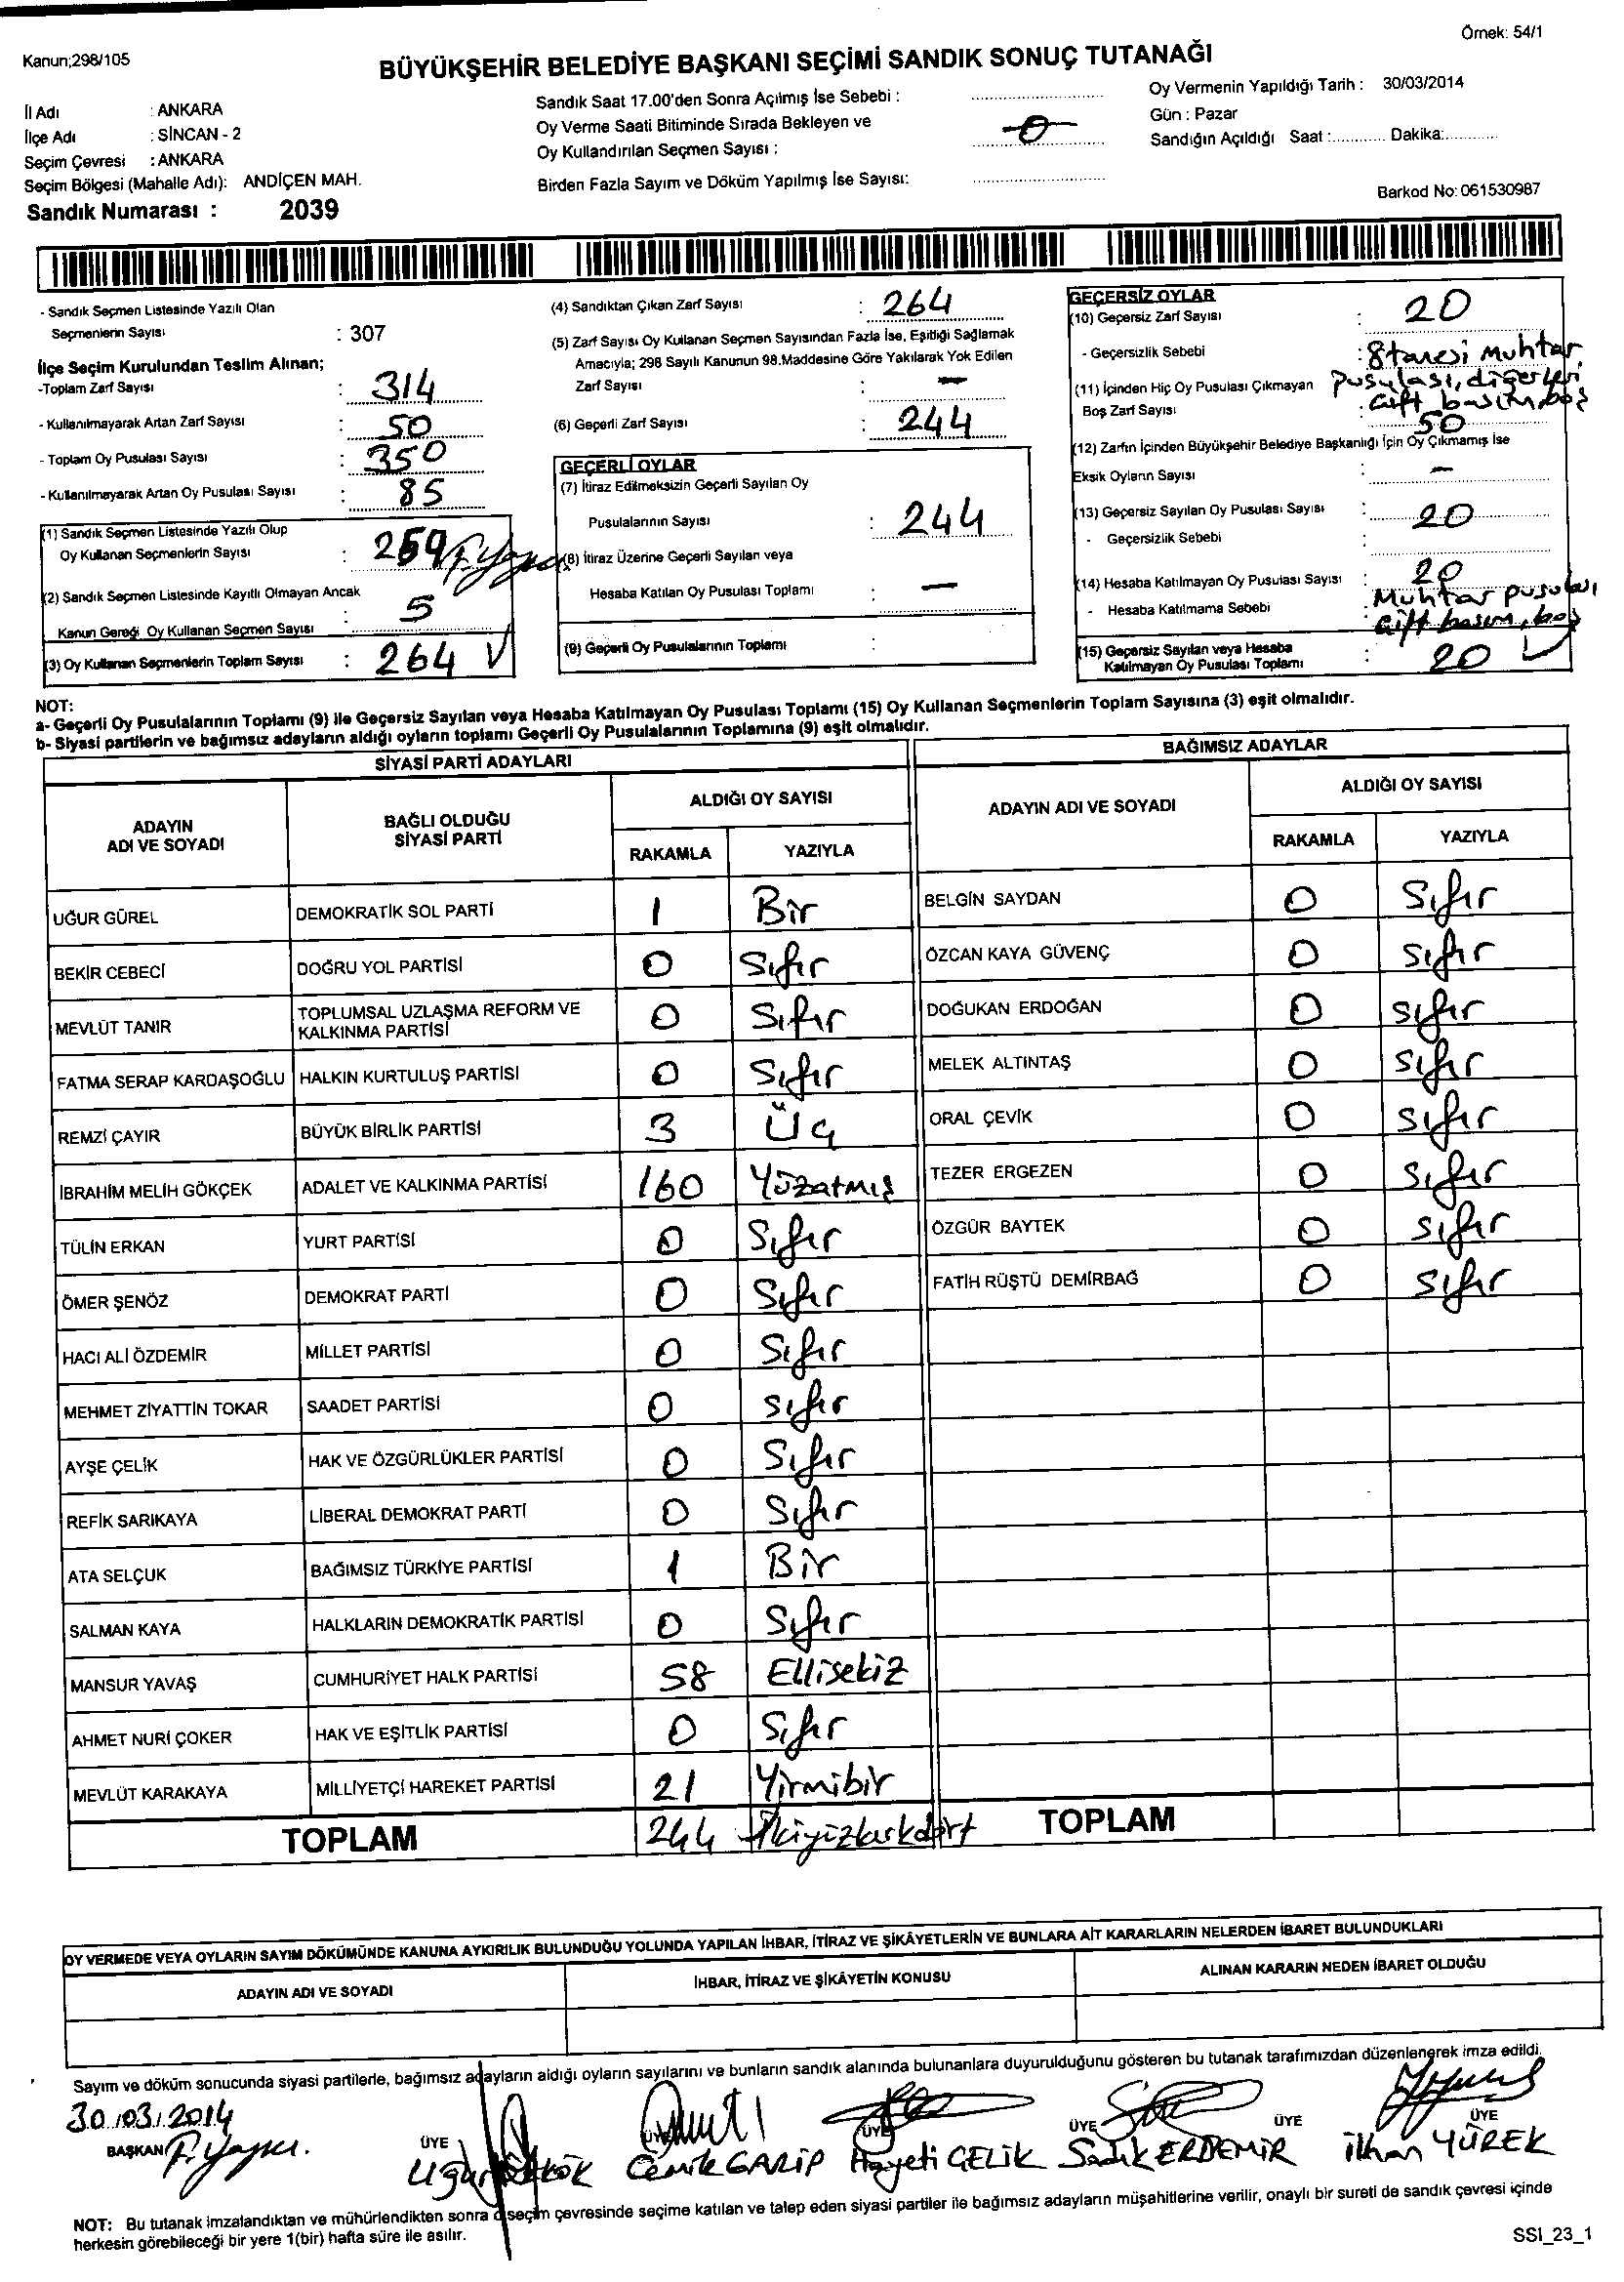 Örnek: 54/1
Kanun;298/105
BÜYÜKŞEHİR BELEDİYE BAŞKANI SEÇİMİ SANDIK SONUÇ TUTANAĞI
İl Adı : ANKARA
İlçe Adı : SİNCAN - 2
Seçim Çevresi : ANKARA
Seçim Bölgesi (Mahalle Adı): ANDİÇEN MAH.
Sandık Numarası : 2039
Sandık Saat 17.00'den Sonra Açılmış İse Sebebi :
Oy Verme Saati Bitiminde Sırada Bekleyen ve
Oy Kullandırılan Seçmen Sayısı : 0
Birden Fazla Sayım ve Döküm Yapılmış İse Sayısı:
Oy Vermenin Yapıldığı Tarih : 30/03/2014
Gün : Pazar
Sandığın Açıldığı Saat :............ Dakika:............
Barkod No: 061530987
- Sandık Seçmen Listesinde Yazılı Olan
Seçmenlerin Sayısı : 307
İlçe Seçim Kurulundan Teslim Alınan;
-Toplam Zarf Sayısı : 314
- Kullanılmayarak Artan Zarf Sayısı : 50
- Toplam Oy Pusulası Sayısı : 350
- Kullanılmayarak Artan Oy Pusulası Sayısı : 85
(1) Sandık Seçmen Listesinde Yazılı Olup
Oy Kullanan Seçmenlerin Sayısı : 259
(2) Sandık Seçmen Listesinde Kayıtlı Olmayan Ancak
Kanun Gereği Oy Kullanan Seçmen Sayısı 5
(3) Oy Kullanan Seçmenlerin Toplam Sayısı : 264
(4) Sandıktan Çıkan Zarf Sayısı : 264
(5) Zarf Sayısı Oy Kullanan Seçmen Sayısından Fazla İse, Eşitliği Sağlamak
Amacıyla; 298 Sayılı Kanunun 98.Maddesine Göre Yakılarak Yok Edilen
Zarf Sayısı : —
(6) Geçerli Zarf Sayısı : 244
GEÇERLİ OYLAR
(7) İtiraz Edilmeksizin Geçerli Sayılan Oy
Pusulalarının Sayısı : 244
(8) İtiraz Üzerine Geçerli Sayılan veya
Hesaba Katılan Oy Pusulası Toplamı : —
(9) Geçerli Oy Pusulalarının Toplamı :
GEÇERSİZ OYLAR
(10) Geçersiz Zarf Sayısı : 20
- Geçersizlik Sebebi : 8 tanesi Muhtar
pusulası, diğerleri
çift basım, boş
(11) İçinden Hiç Oy Pusulası Çıkmayan
Boş Zarf Sayısı : 50
(12) Zarfın İçinden Büyükşehir Belediye Başkanlığı İçin Oy Çıkmamış İse
Eksik Oyların Sayısı : —
(13) Geçersiz Sayılan Oy Pusulası Sayısı : 20
- Geçersizlik Sebebi :
(14) Hesaba Katılmayan Oy Pusulası Sayısı : 20
- Hesaba Katılmama Sebebi : Muhtar pusulası
çift basım, boş
(15) Geçersiz Sayılan veya Hesaba
Katılmayan Oy Pusulası Toplamı : 20
NOT:
a- Geçerli Oy Pusulalarının Toplamı (9) ile Geçersiz Sayılan veya Hesaba Katılmayan Oy Pusulası Toplamı (15) Oy Kullanan Seçmenlerin Toplam Sayısına (3) eşit olmalıdır.
b- Siyasi partilerin ve bağımsız adayların aldığı oyların toplamı Geçerli Oy Pusulalarının Toplamına (9) eşit olmalıdır.
SİYASİ PARTİ ADAYLARI
ADAYIN ADI VE SOYADI BAĞLI OLDUĞU SİYASİ PARTİ ALDIĞI OY SAYISI
RAKAMLA YAZIYLA
UĞUR GÜREL DEMOKRATİK SOL PARTİ 1 Bir
BEKİR CEBECİ DOĞRU YOL PARTİSİ 0 Sıfır
MEVLÜT TANIR TOPLUMSAL UZLAŞMA REFORM VE KALKINMA PARTİSİ 0 Sıfır
FATMA SERAP KARDAŞOĞLU HALKIN KURTULUŞ PARTİSİ 0 Sıfır
REMZİ ÇAYIR BÜYÜK BİRLİK PARTİSİ 3 Üç
İBRAHİM MELİH GÖKÇEK ADALET VE KALKINMA PARTİSİ 160 Yüzatmış
TÜLİN ERKAN YURT PARTİSİ 0 Sıfır
ÖMER ŞENÖZ DEMOKRAT PARTİ 0 Sıfır
HACI ALİ ÖZDEMİR MİLLET PARTİSİ 0 Sıfır
MEHMET ZİYATTİN TOKAR SAADET PARTİSİ 0 Sıfır
AYŞE ÇELİK HAK VE ÖZGÜRLÜKLER PARTİSİ 0 Sıfır
REFİK SARIKAYA LİBERAL DEMOKRAT PARTİ 0 Sıfır
ATA SELÇUK BAĞIMSIZ TÜRKİYE PARTİSİ 1 Bir
SALMAN KAYA HALKLARIN DEMOKRATİK PARTİSİ 0 Sıfır
MANSUR YAVAŞ CUMHURİYET HALK PARTİSİ 58 Ellisekiz
AHMET NURİ ÇOKER HAK VE EŞİTLİK PARTİSİ 0 Sıfır
MEVLÜT KARAKAYA MİLLİYETÇİ HAREKET PARTİSİ 21 Yirmibir
TOPLAM 244 İkiyüzkırkdört
BAĞIMSIZ ADAYLAR
ADAYIN ADI VE SOYADI ALDIĞI OY SAYISI
RAKAMLA YAZIYLA
BELGİN SAYDAN 0 Sıfır
ÖZCAN KAYA GÜVENÇ 0 Sıfır
DOĞUKAN ERDOĞAN 0 Sıfır
MELEK ALTINTAŞ 0 Sıfır
ORAL ÇEVİK 0 Sıfır
TEZER ERGEZEN 0 Sıfır
ÖZGÜR BAYTEK 0 Sıfır
FATİH RÜŞTÜ DEMİRBAĞ 0 Sıfır
TOPLAM
OY VERMEDE VEYA OYLARIN SAYIM DÖKÜMÜNDE KANUNA AYKIRILIK BULUNDUĞU YOLUNDA YAPILAN İHBAR, İTİRAZ VE ŞİKÂYETLERİN VE BUNLARA AİT KARARLARIN NELERDEN İBARET BULUNDUKLARI
ADAYIN ADI VE SOYADI İHBAR, İTİRAZ VE ŞİKÂYETİN KONUSU ALINAN KARARIN NEDEN İBARET OLDUĞU
Sayım ve döküm sonucunda siyasi partilerle, bağımsız adayların aldığı oyların sayılarını ve bunların sandık alanında bulunanlara duyurulduğunu gösteren bu tutanak tarafımızdan düzenlenerek imza edildi.
30.03.2014
BAŞKAN ÜYE ÜYE ÜYE ÜYE ÜYE ÜYE
Uğur Cemil GARİP Hayati ÇELİK Sadık ERDEMİR İlhan YÜREK
NOT: Bu tutanak imzalandıktan ve mühürlendikten sonra o seçim çevresinde seçime katılan ve talep eden siyasi partiler ile bağımsız adayların müşahitlerine verilir, onaylı bir sureti de sandık çevresi içinde
herkesin görebileceği bir yere 1(bir) hafta süre ile asılır.
SSI_23_1